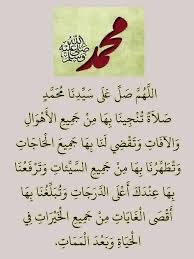 محمد
صلى الله عليه وسلم
اللَّهُمَّ صَلِّ عَلَى سَيِّدِنَا مُحَمَّدٍ
صَلَاةً تُنْجِينَا بِهَا مِنْ جَمِيعِ الأَهْوَالِ
وَالآفَاتِ وَتَقْضِي لَنَا بِهَا جَمِيعَ الْحَاجَاتِ
وَتُطَهِّرُنَا بِهَا مِنْ جَمِيعِ السَّيِّئَاتِ وَتَرْفَعُنَا
بِهَا عِنْدَكَ أَعْلَى الدَّرَجَاتِ وَتُبَلِّغُنَا بِهَا
أَقْصَى الْغَايَاتِ مِنْ جَمِيعِ الْخَيْرَاتِ فِي
الْحَيَاةِ وَبَعْدَ الْمَمَاتِ.